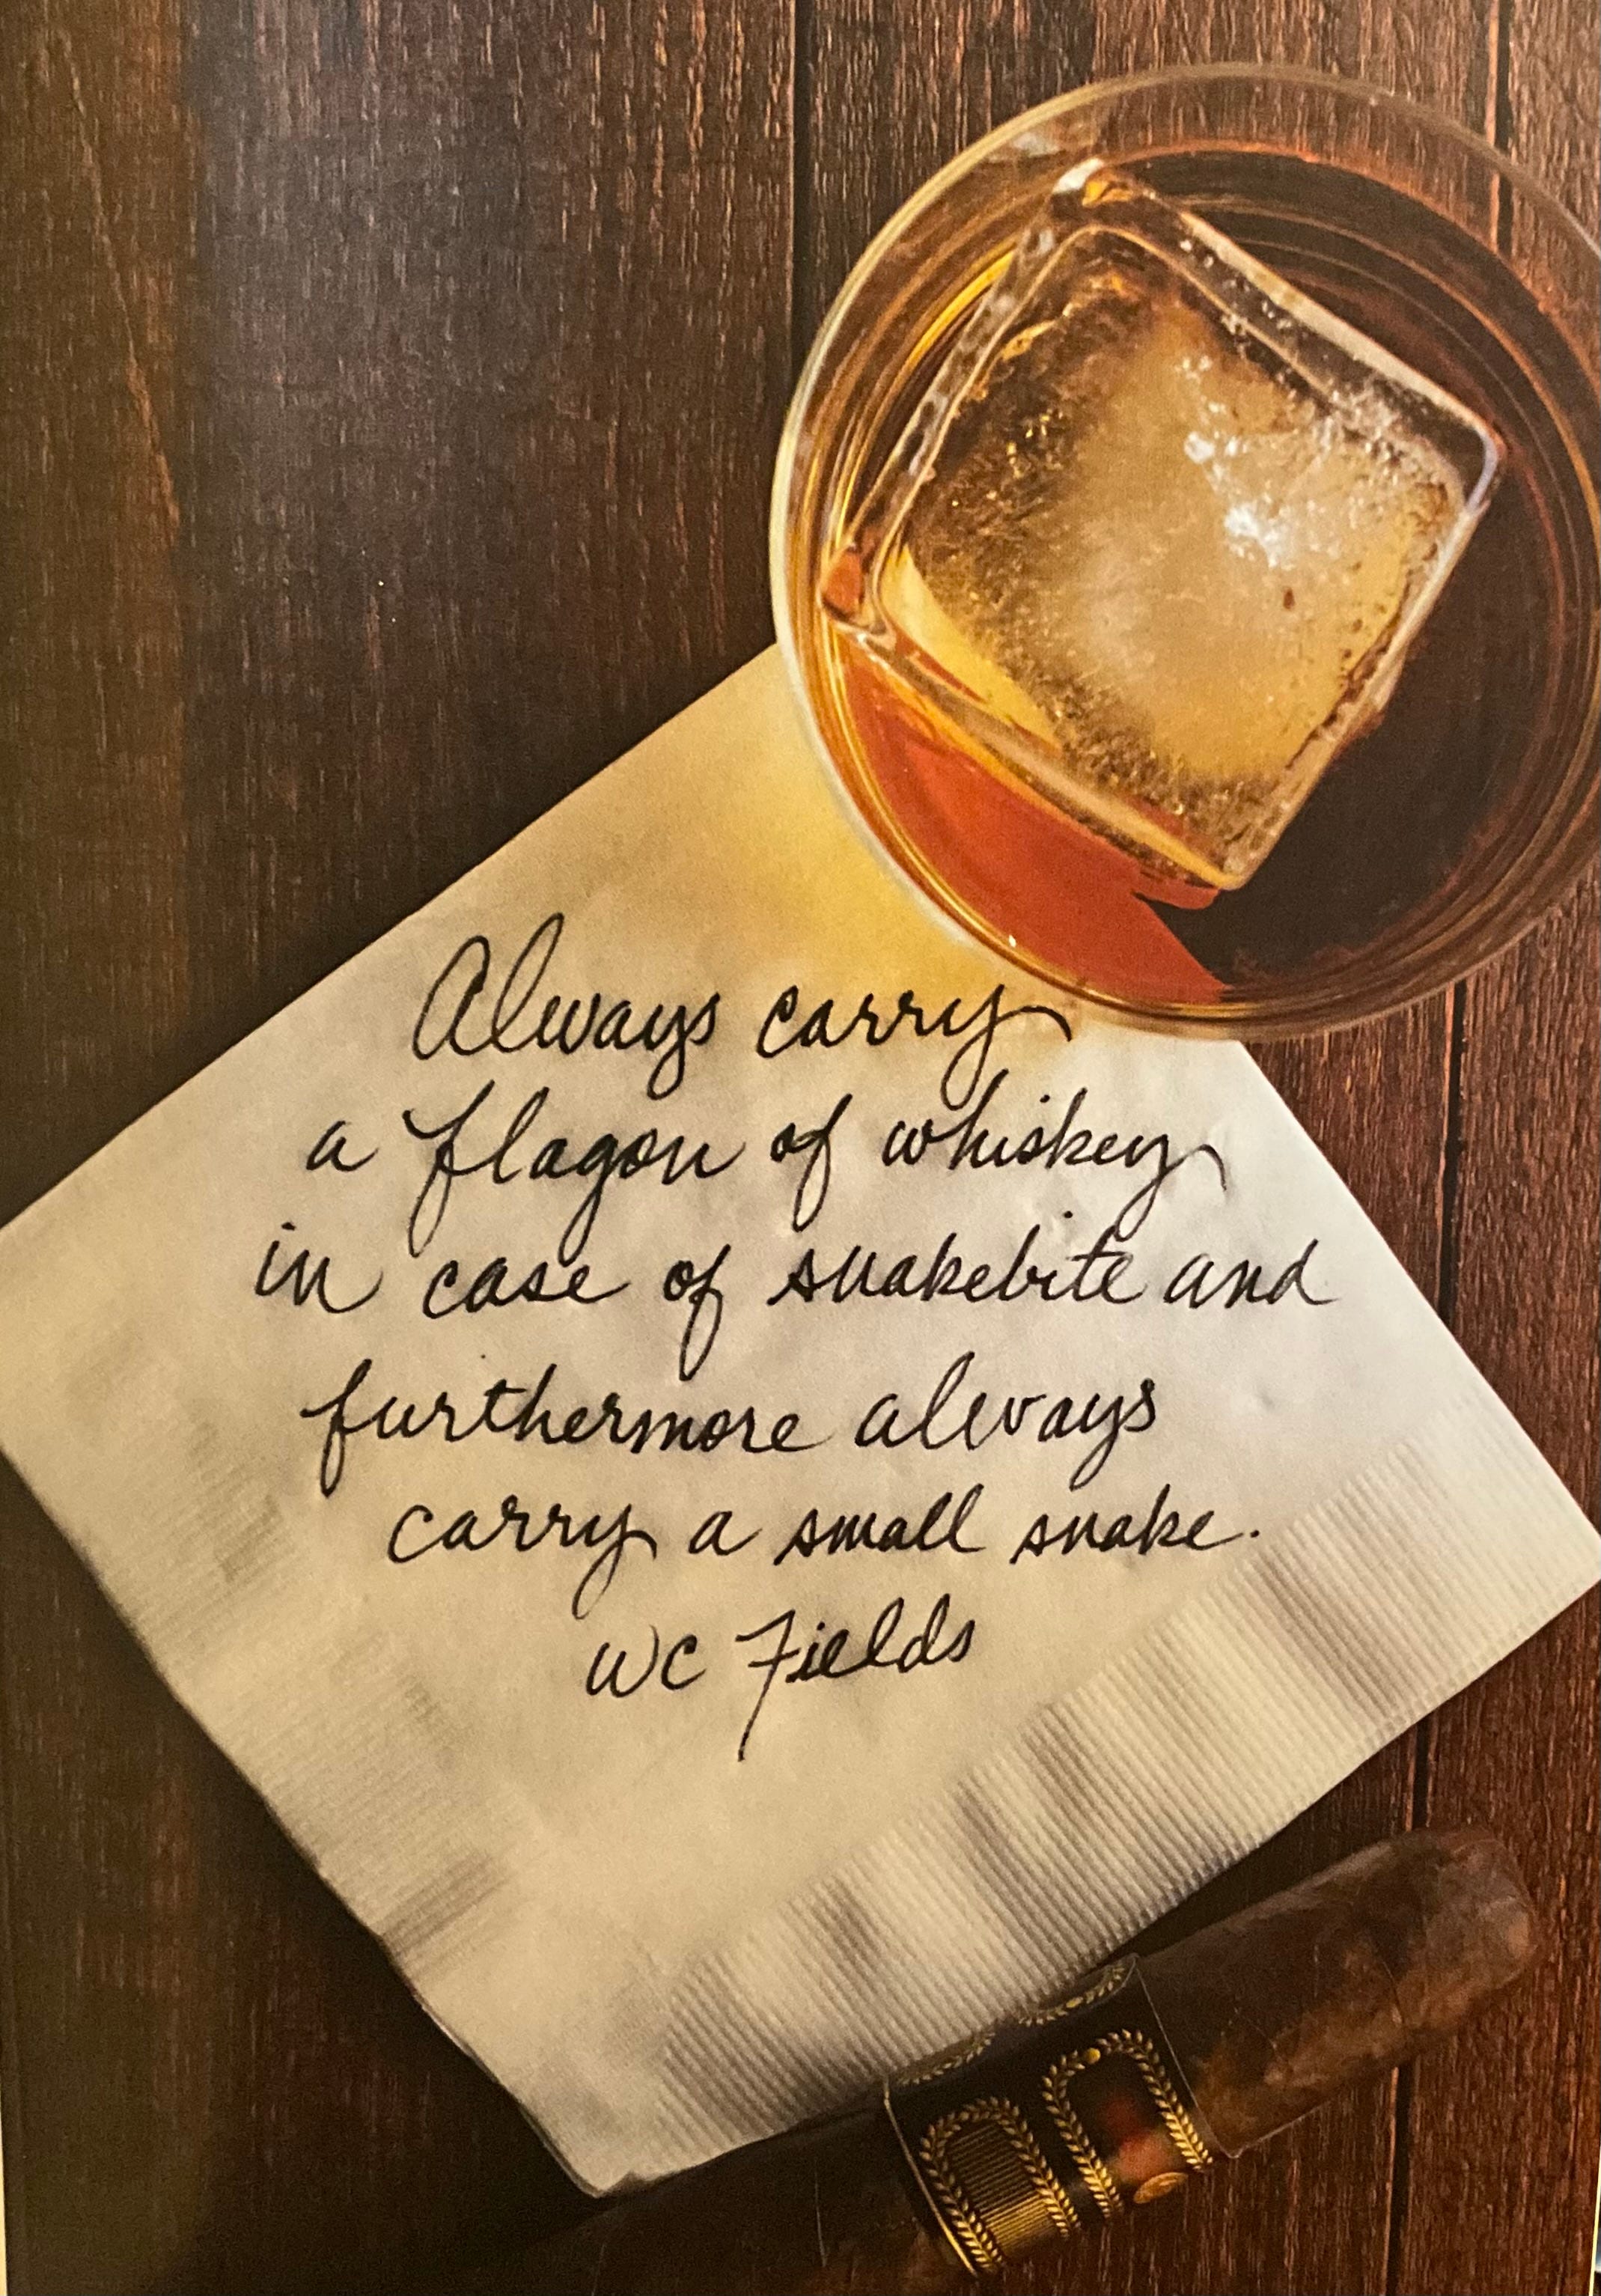 Always carry
a flagon of whiskey
in case of snakebite and
furthermore always
carry a small snake.
WC Fields